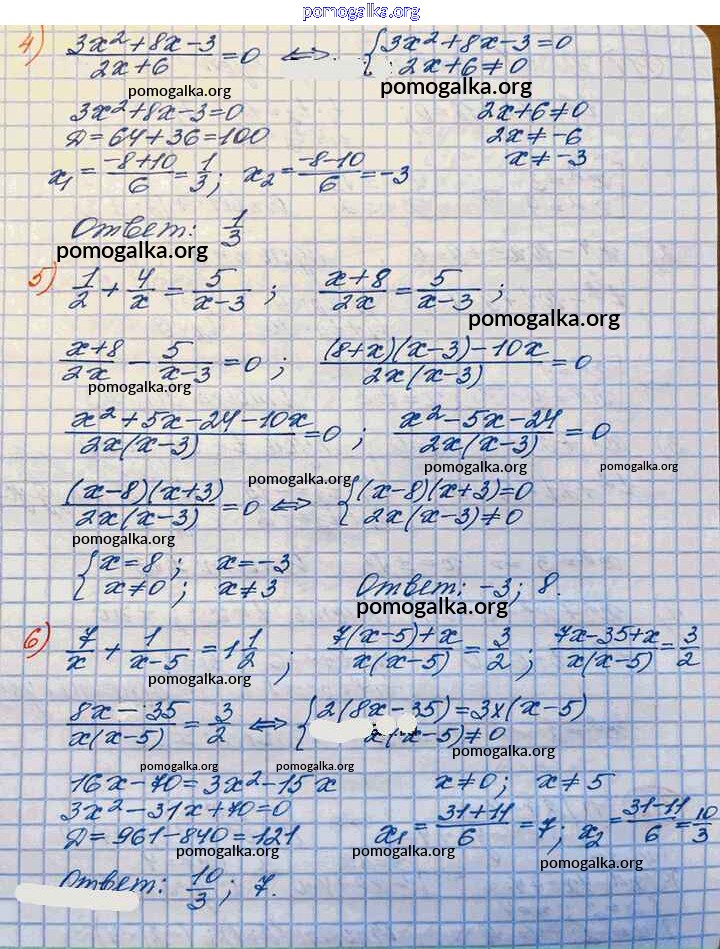 pomogalka.org
4) (3x²+8x-3)/(2x+6) = 0 ⇔ { 3x²+8x-3=0
2x+6≠0
pomogalka.org pomogalka.org
3x²+8x-3=0 2x+6≠0
Д=64+36=100 2x≠-6
x₁ = (-8+10)/6 = 1/3; x₂ = (-8-10)/6 = -3 x≠-3
Ответ: 1/3
pomogalka.org
5) 1/2 + 4/x = 5/(x-3); (x+8)/(2x) = 5/(x-3);
pomogalka.org
(x+8)/(2x) - 5/(x-3) = 0; ((8+x)(x-3)-10x)/(2x(x-3)) = 0
pomogalka.org
(x²+5x-24-10x)/(2x(x-3)) = 0; (x²-5x-24)/(2x(x-3)) = 0
pomogalka.org pomogalka.org pomogalka.org
((x-8)(x+3))/(2x(x-3)) = 0 ⇔ { (x-8)(x+3)=0
2x(x-3)≠0
pomogalka.org
{ x=8; x=-3
x≠0; x≠3 Ответ: -3; 8.
pomogalka.org
6) 7/x + 1/(x-5) = 1 1/2; (7(x-5)+x)/(x(x-5)) = 3/2; (7x-35+x)/(x(x-5)) = 3/2
pomogalka.org
(8x-35)/(x(x-5)) = 3/2 ⇔ { 2(8x-35)=3x(x-5)
x(x-5)≠0
pomogalka.org
pomogalka.org pomogalka.org
16x-70=3x²-15x x≠0; x≠5
3x²-31x+70=0
Д=961-840=121 x₁ = (31+11)/6 = 7; x₂ = (31-11)/6 = 10/3
pomogalka.org pomogalka.org pomogalka.org
Ответ: 10/3; 7.